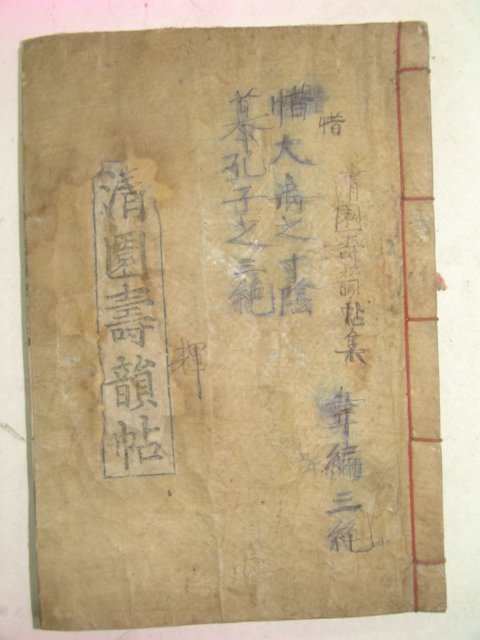 清園壽韻帖集
惜
韋編三絶
惜大禹之寸陰
慕孔子之三絶
輝
清園壽韻帖